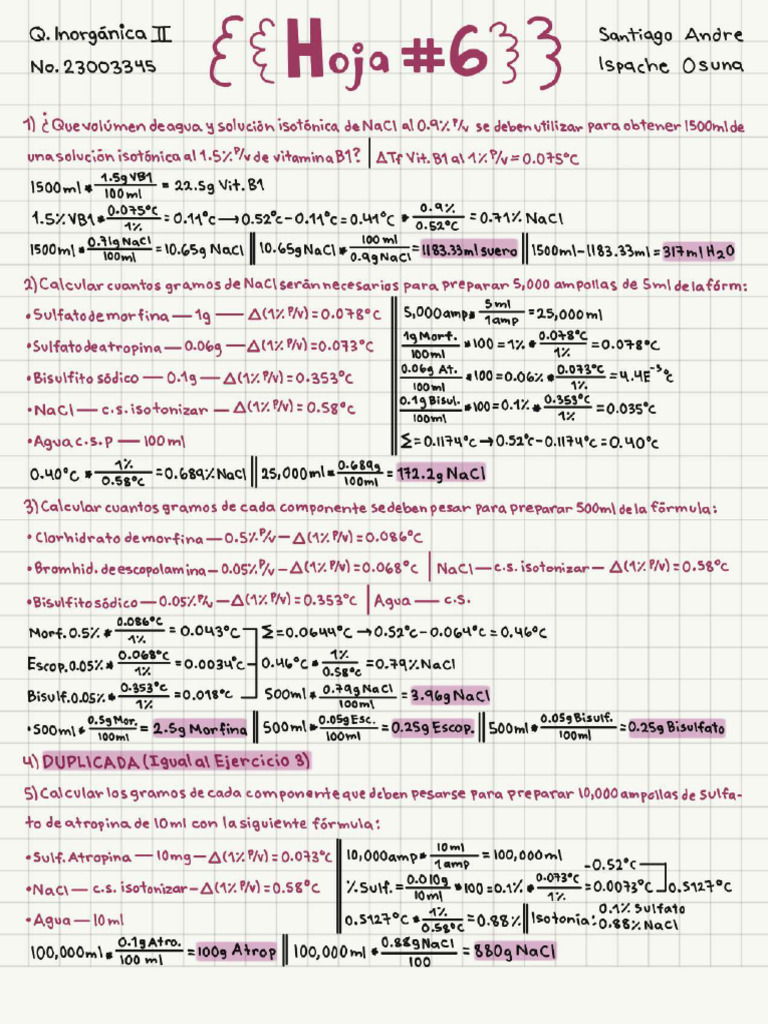 Q. Inorgánica II
No. 23003345
{{ Hoja #6 }}
Santiago Andre
Ispache Osuna
1) ¿Que volúmen de agua y solución isotónica de NaCl al 0.9% P/v se deben utilizar para obtener 1500ml de
una solución isotónica al 1.5% P/v de vitamina B1? | ΔTf Vit. B1 al 1% P/v = 0.075°C
1500ml * 1.5g VB1/100ml = 22.5g Vit. B1
1.5% VB1 * 0.075°C/1% = 0.11°C → 0.52°C - 0.11°C = 0.41°C * 0.9%/0.52°C = 0.71% NaCl
1500ml * 0.71g NaCl/100ml = 10.65g NaCl || 10.65g NaCl * 100ml/0.9g NaCl = 1183.33ml suero || 1500ml - 1183.33ml = 317ml H2O
2) Calcular cuantos gramos de NaCl serán necesarios para preparar 5,000 ampollas de 5ml de la fórm:
• Sulfato de morfina — 1g — Δ(1% P/v) = 0.078°C
• Sulfato de atropina — 0.06g — Δ(1% P/v) = 0.073°C
• Bisulfito sódico — 0.1g — Δ(1% P/v) = 0.353°C
• NaCl — c.s. isotonizar — Δ(1% P/v) = 0.58°C
• Agua c.s.p — 100ml
5,000amp * 5ml/1amp = 25,000ml
1g Morf./100ml * 100 = 1% * 0.078°C/1% = 0.078°C
0.06g At./100ml * 100 = 0.06% * 0.073°C/1% = 4.4E⁻³°C
0.1g Bisul./100ml * 100 = 0.1% * 0.353°C/1% = 0.035°C
Σ = 0.1174°C → 0.52°C - 0.1174°C = 0.40°C
0.40°C * 1%/0.58°C = 0.689% NaCl || 25,000ml * 0.689g/100ml = 172.2g NaCl
3) Calcular cuantos gramos de cada componente se deben pesar para preparar 500ml de la fórmula:
• Clorhidrato de morfina — 0.5% P/v — Δ(1% P/v) = 0.086°C
• Bromhid. de escopolamina — 0.05% P/v — Δ(1% P/v) = 0.068°C | NaCl — c.s. isotonizar — Δ(1% P/v) = 0.58°C
• Bisulfito sódico — 0.05% P/v — Δ(1% P/v) = 0.353°C | Agua — c.s.
Morf. 0.5% * 0.086°C/1% = 0.043°C
Escop. 0.05% * 0.068°C/1% = 0.0034°C
Bisulf. 0.05% * 0.353°C/1% = 0.018°C
Σ = 0.0644°C → 0.52°C - 0.064°C = 0.46°C
0.46°C * 1%/0.58°C = 0.79% NaCl
500ml * 0.79g NaCl/100ml = 3.96g NaCl
• 500ml * 0.5g Mor./100ml = 2.5g Morfina || 500ml * 0.05g Esc./100ml = 0.25g Escop. || 500ml * 0.05g Bisulf./100ml = 0.25g Bisulfato
4) DUPLICADA (Igual al Ejercicio 3)
5) Calcular los gramos de cada componente que deben pesarse para preparar 10,000 ampollas de Sulfa-
to de atropina de 10ml con la siguiente fórmula:
• Sulf. Atropina — 10mg — Δ(1% P/v) = 0.073°C
• NaCl — c.s. isotonizar — Δ(1% P/v) = 0.58°C
• Agua — 10ml
10,000amp * 10ml/1amp = 100,000ml
-0.52°C
% Sulf. = 0.010g/10ml * 100 = 0.1% * 0.073°C/1% = 0.0073°C
0.5127°C
0.5127°C * 1%/0.58°C = 0.88% || Isotonía: 0.1% Sulfato
0.88% NaCl
100,000ml * 0.1g Atro./100 ml = 100g Atrop || 100,000ml * 0.88g NaCl/100 = 880g NaCl